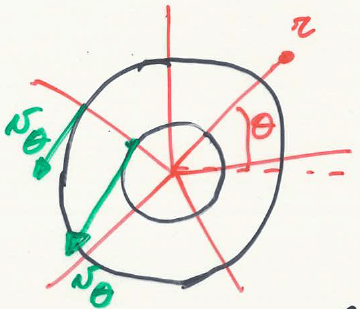 r
θ
v_θ
v_θ